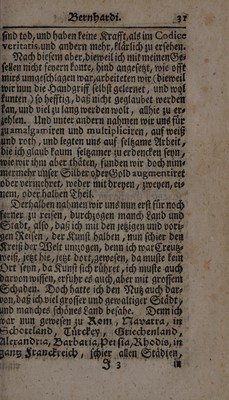 Bernhardi. 31
sind tod, und haben keine Krafft, als im Codice
veritatis.und andern mehr, klärlich zu ersehen.
Nach diesem aber, dieweil ich mit meinen Ge-
sellen nicht feyern konte, hind angesetzt, wie offt
mirs umgeschlagen war, arbeiteten wir (dieweil
wir nun die Handgriff selbst gelernet, und wol
kunten) so hefftig, daß nicht geglaubet werden
kan, und viel zu lang werden wolt, allhie zu er-
zehlen. Und unter andern nahmen wir uns für
zu amalgamiren und multipliciren, auf weiß
und roth, und legten uns auf seltzame Arbeit,
die ich glaub kaum seltzamer zu erdencken seyn,
wie wir ihm aber thäten, funden wir doch nim-
mermehr unser Silber oder Gold augmentiret
oder vermehret, weder mit dreyen, zweyen, ei-
nem, oder halben Theil.
Derhalben nahmen wir uns nun erst für noch
ferner zu reisen, durchzogen manch Land und
Stadt, also, daß ich mit den jetzigen und vori-
gen Reisen, der Kunst halben, nun schier den
Kreiß der Welt umzogen, denn ich war Creutz-
weiß, jetzt hie, jetzt dort, gewesen, da muste kein
Ort seyn, da Kunst sich rühret, ich muste auch
darvon wissen, erfuhr es auch, aber mit grossem
Schaden. Doch hatte ich den Nutz auch dar-
von, daß ich viel grosser und gewaltiger Städt,
und manches schönes Land besahe. Denn ich
war nun gewesen zu Rom, Navarra, in
Schottland, Türckey, Griechenland,
Alexandria, Barbaria, Persia, Rhodis, in
gantz Franckreich, schier allen Städten,
J 3 in